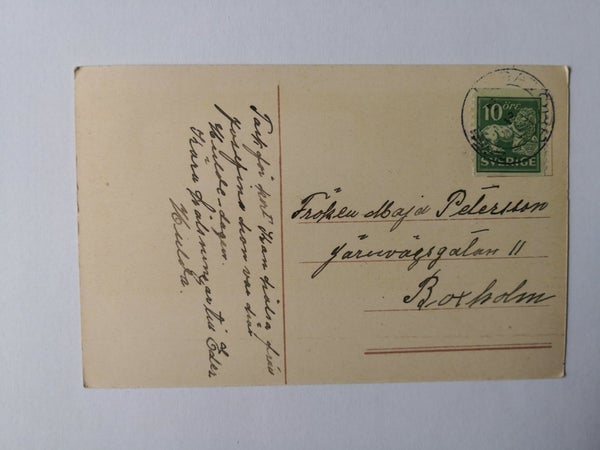 Tack för kort kan hälsa från
Josefina hon var här
Hulde-dagen.
Kära hälsningar till Eder
Hulda.
10 ÖRE
SVERIGE
Fröken Maja Petersson
Järnvägsgatan 11
Boxholm